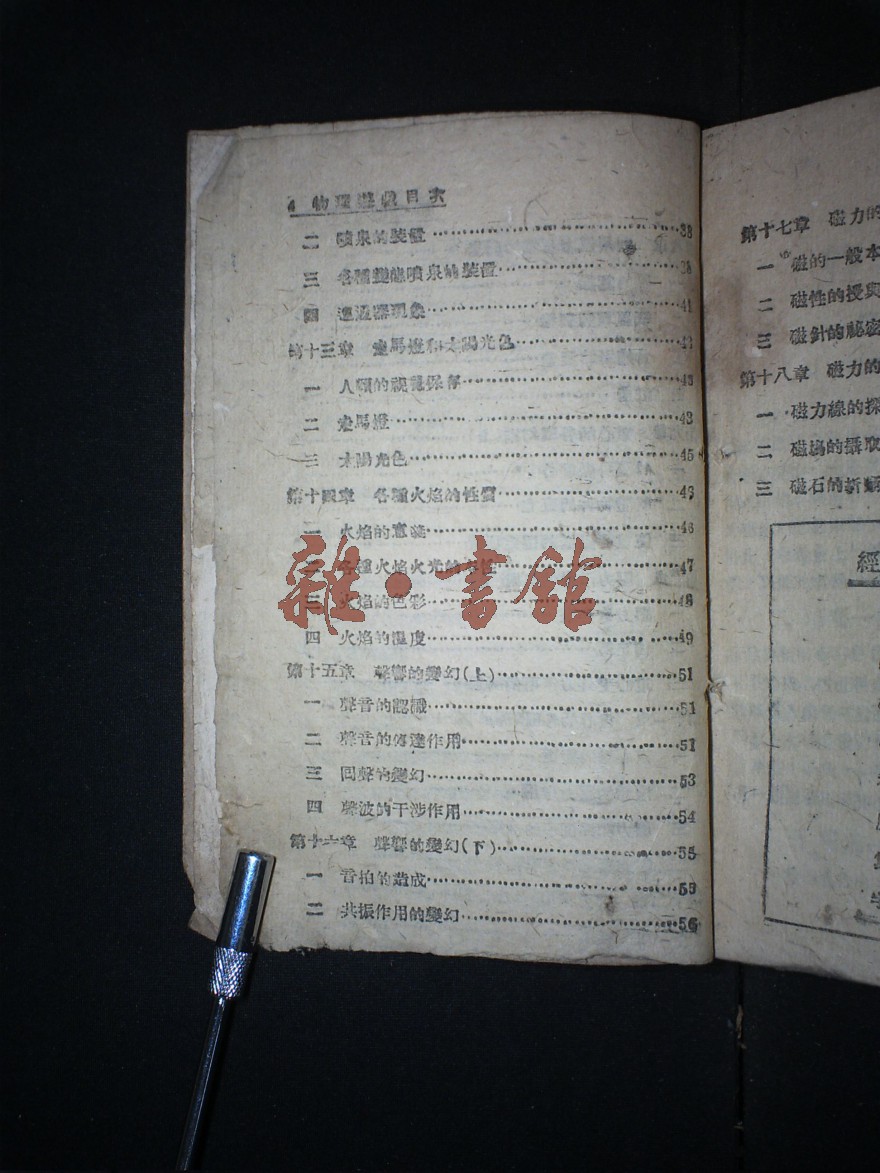 4 物理遊戲目次
二 噴泉的裝置 38
三 各種變態噴泉的裝置
四 連通器現象 41
第十三章 走馬燈和太陽光色
一 人類的視覺保存
二 走馬燈 43
三 太陽光色 45
第十四章 各種火焰的性質 46
一 火焰的意義 46
二 各種火焰火光的 47
三 火焰的色彩 48
四 火焰的溫度 49
第十五章 聲響的變幻(上) 51
一 聲音的認識 51
二 聲音的傳達作用 51
三 回聲的變幻 53
四 聲波的干涉作用 54
第十六章 聲響的變幻(下) 55
一 音拍的造成 55
二 共振作用的變幻 56
雜·書館
第十七章 磁力的
一 磁的一般本
二 磁性的授與
三 磁針的祕密
第十八章 磁力的
一 磁力線的探
二 磁場的攝取
三 磁石的折
經